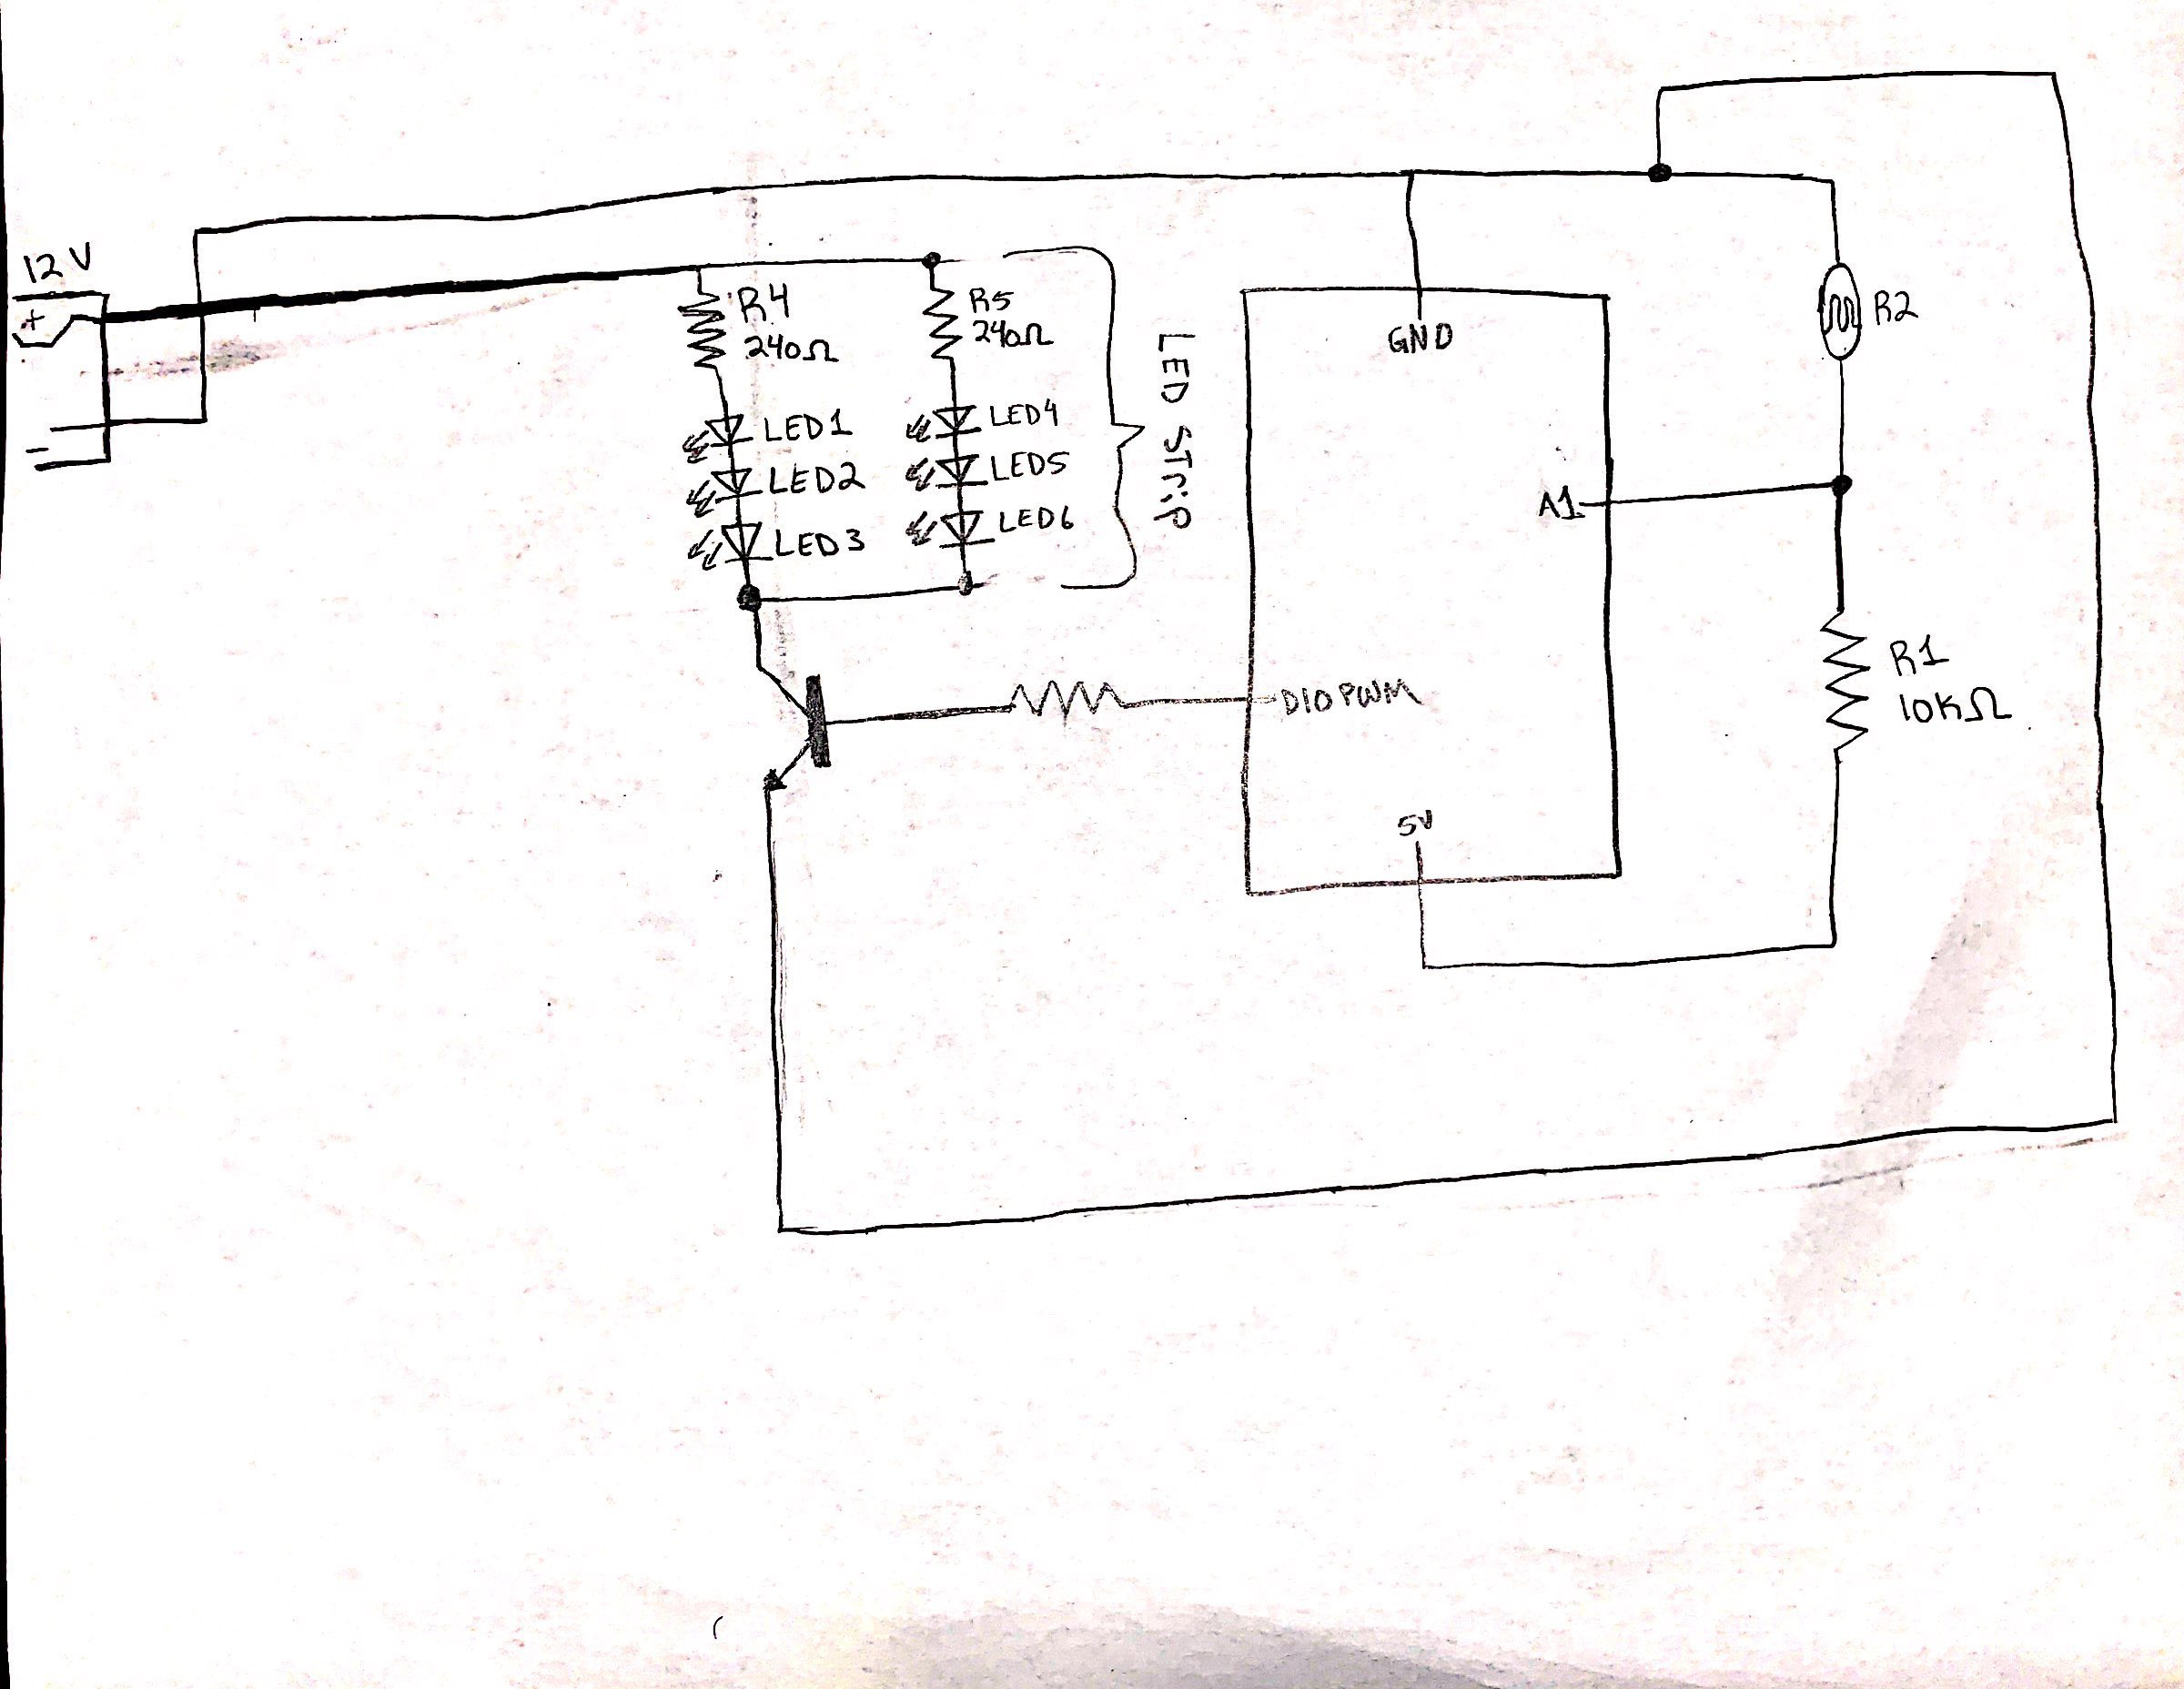 12V
+
-
R4
240Ω
R5
240Ω
LED1
LED2
LED3
LED4
LED5
LED6
LED STrip
GND
A1
D10PWM
5V
R2
R1
10KΩ